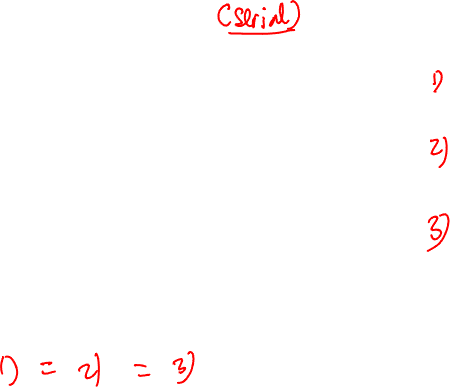 (serial)
1)
2)
3)
1) = 2) = 3)